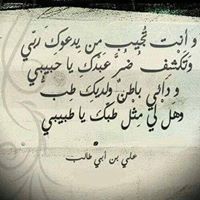 و أنت تُجيبُ من يدعوكَ ربّي
وتكشفُ ضُرَّ عبدكَ يا حبيبي
و دائي باطنٌ ولديكَ طِبٌّ
وهل لي مِثْلَ طبّكَ يا طبيبي
علي بن أبي طالب